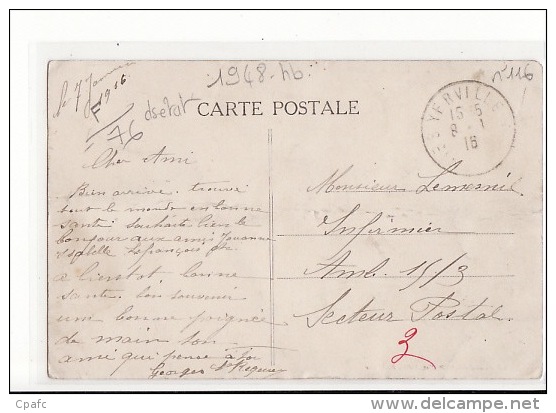 le 7 Janvier
1916
F/76
1948-hb.
n°116
CARTE POSTALE
YERVILLE
8 - 1
16
Cher Ami
Bien arrivé. trouvé
tout le monde en bonne
santé souhaite bien le
bonjour aux amis
Lefrançois
a bientot bonne
sante. bon souvenir
une bonne poignée
de main ton
ami qui pense à toi
Georges
Monsieur
Infirmier
Amb. 15/3
Secteur Postal
3
Cpafc
http://www.delcampe.net